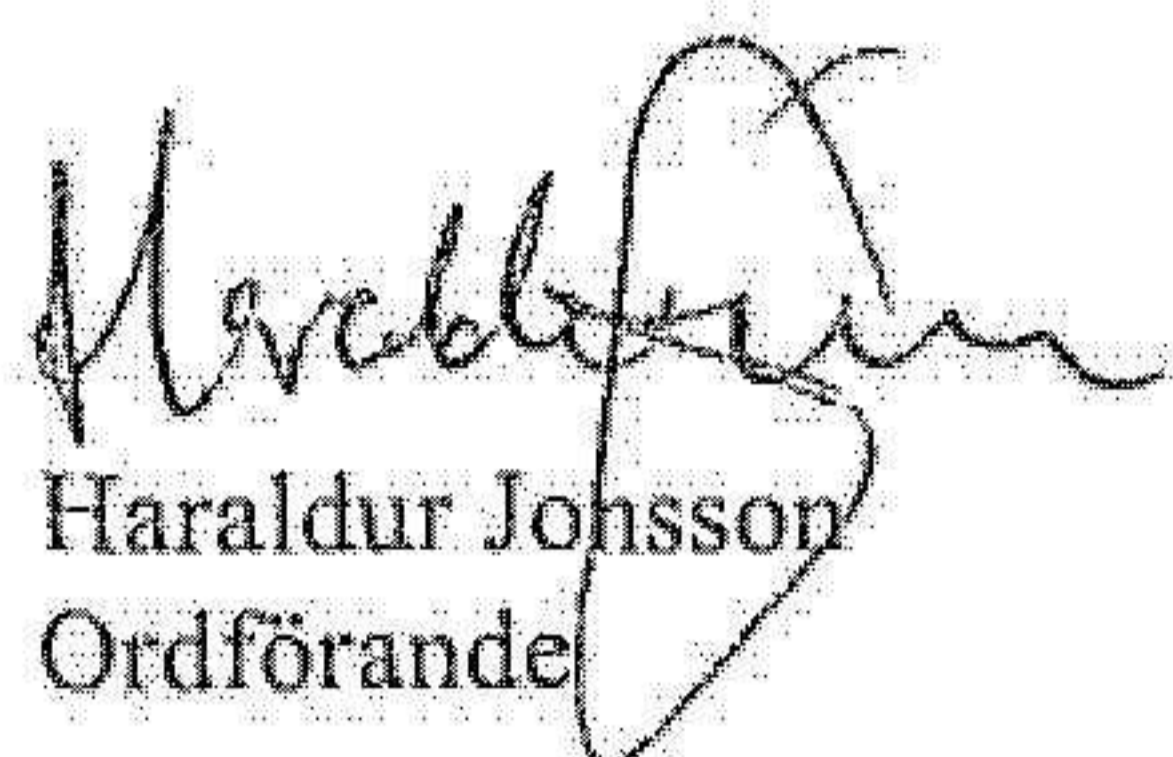 Haraldur Jonsson
Ordförande